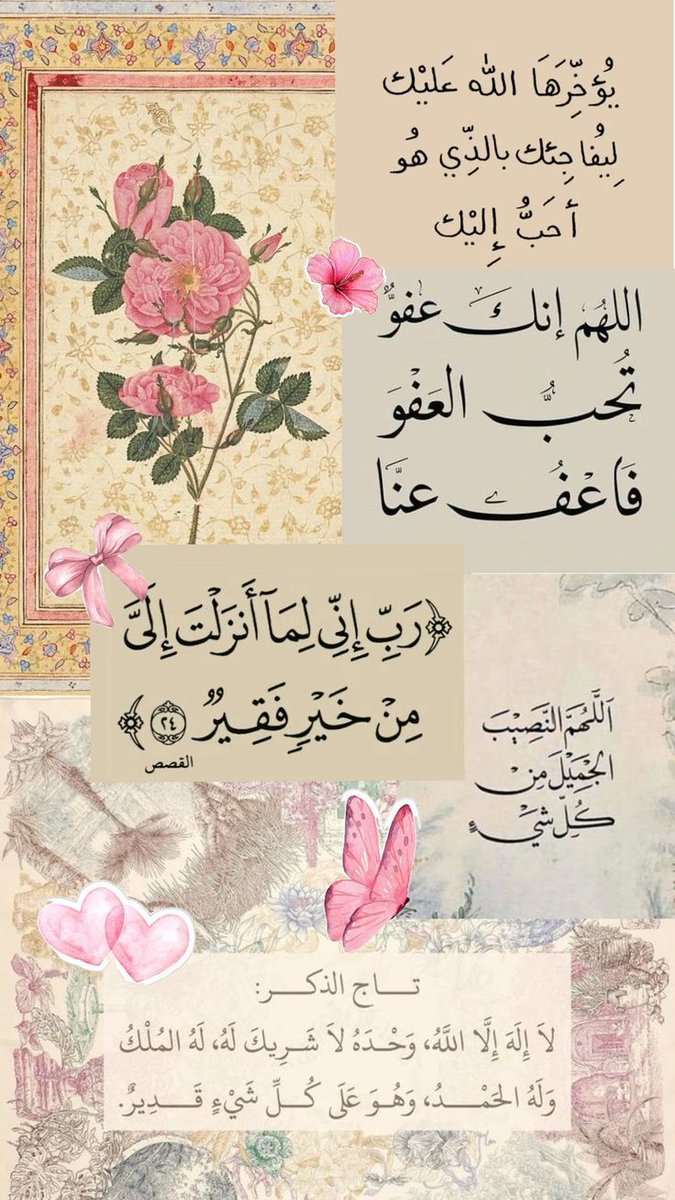 يُؤخِّرَهَا الله عَليْك
لِيُفاجِئك بالذِّي هُو
أحَبُّ إِليْك
اللهُم إنكَ عفوٌّ
تُحبُّ العَفوَ
فَاعْفُ عنَّا
﴿رَبِّ إِنِّي لِمَآ أَنزَلْتَ إِلَىَّ
مِنْ خَيْرٍ فَقِيرٌ ٢٤﴾
القصص
اَللَّهُمَّ النَّصِيْبَ
الجَمِيْلَ مِنْ
كُلِّ شَيْءٍ
تاج الذكر:
لاَ إِلَهَ إِلَّا اللَّهُ، وَحْدَهُ لاَ شَرِيكَ لَهُ، لَهُ المُلْكُ
وَلَهُ الحَمْدُ، وَهُوَ عَلَى كُلِّ شَيْءٍ قَدِيرٌ.